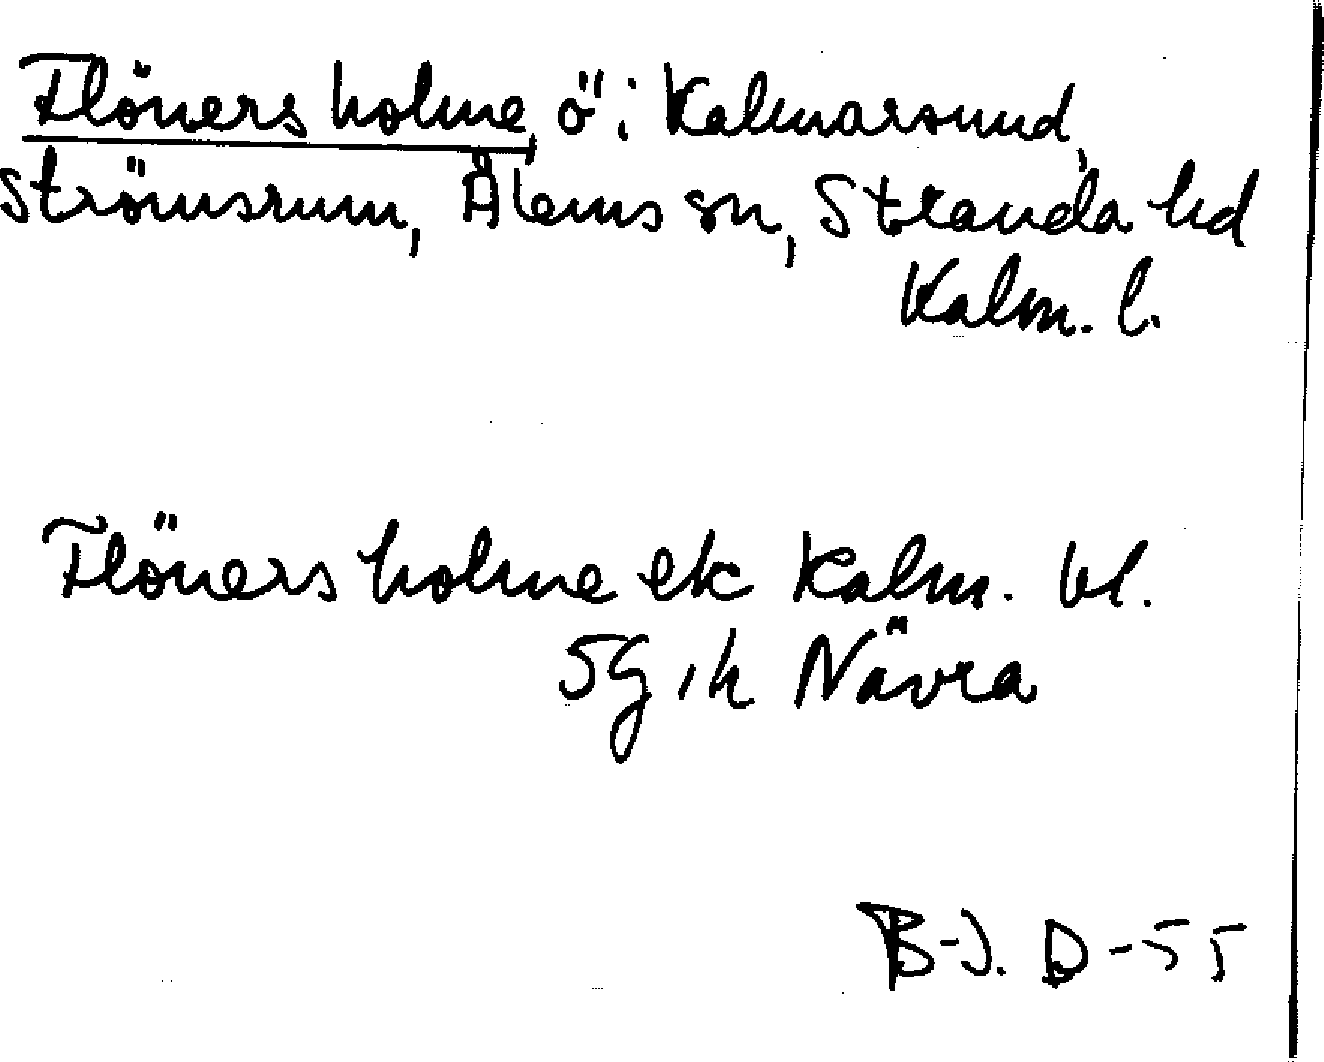 Flöners holme, ö i Kalmarsund,
Strömsrum, Ålems sn, Stranda hd
Kalm. l.
Flöners holme ek Kalm. bl.
5g, h Nävra
B-J. D-55